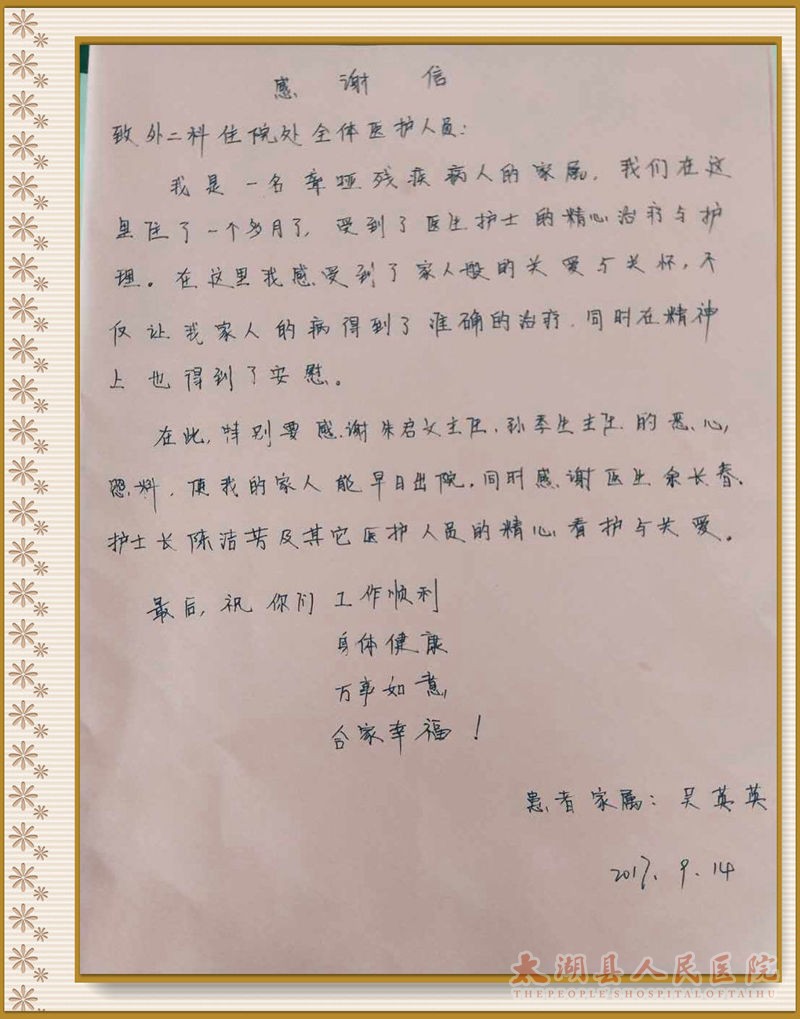 感谢信
致外二科住院处全体医护人员:
我是一名聋哑残疾病人的家属,我们在这
里住了一个多月了,受到了医生护士的精心治疗与护
理。在这里我感受到了家人般的关爱与关怀,不
仅让我家人的病得到了准确的治疗,同时在精神
上也得到了安慰。
在此,特别要感谢朱启文主任,孙季生主任的悉心
照料,使我的家人能早日出院,同时感谢医生余长春、
护士长陈洁芳及其它医护人员的精心看护与关爱。
最后,祝你们工作顺利
身体健康
万事如意
合家幸福!
患者家属:吴英英
2017.9.14
太湖县人民医院
THE PEOPLE'S HOSPITAL OF TAIHU